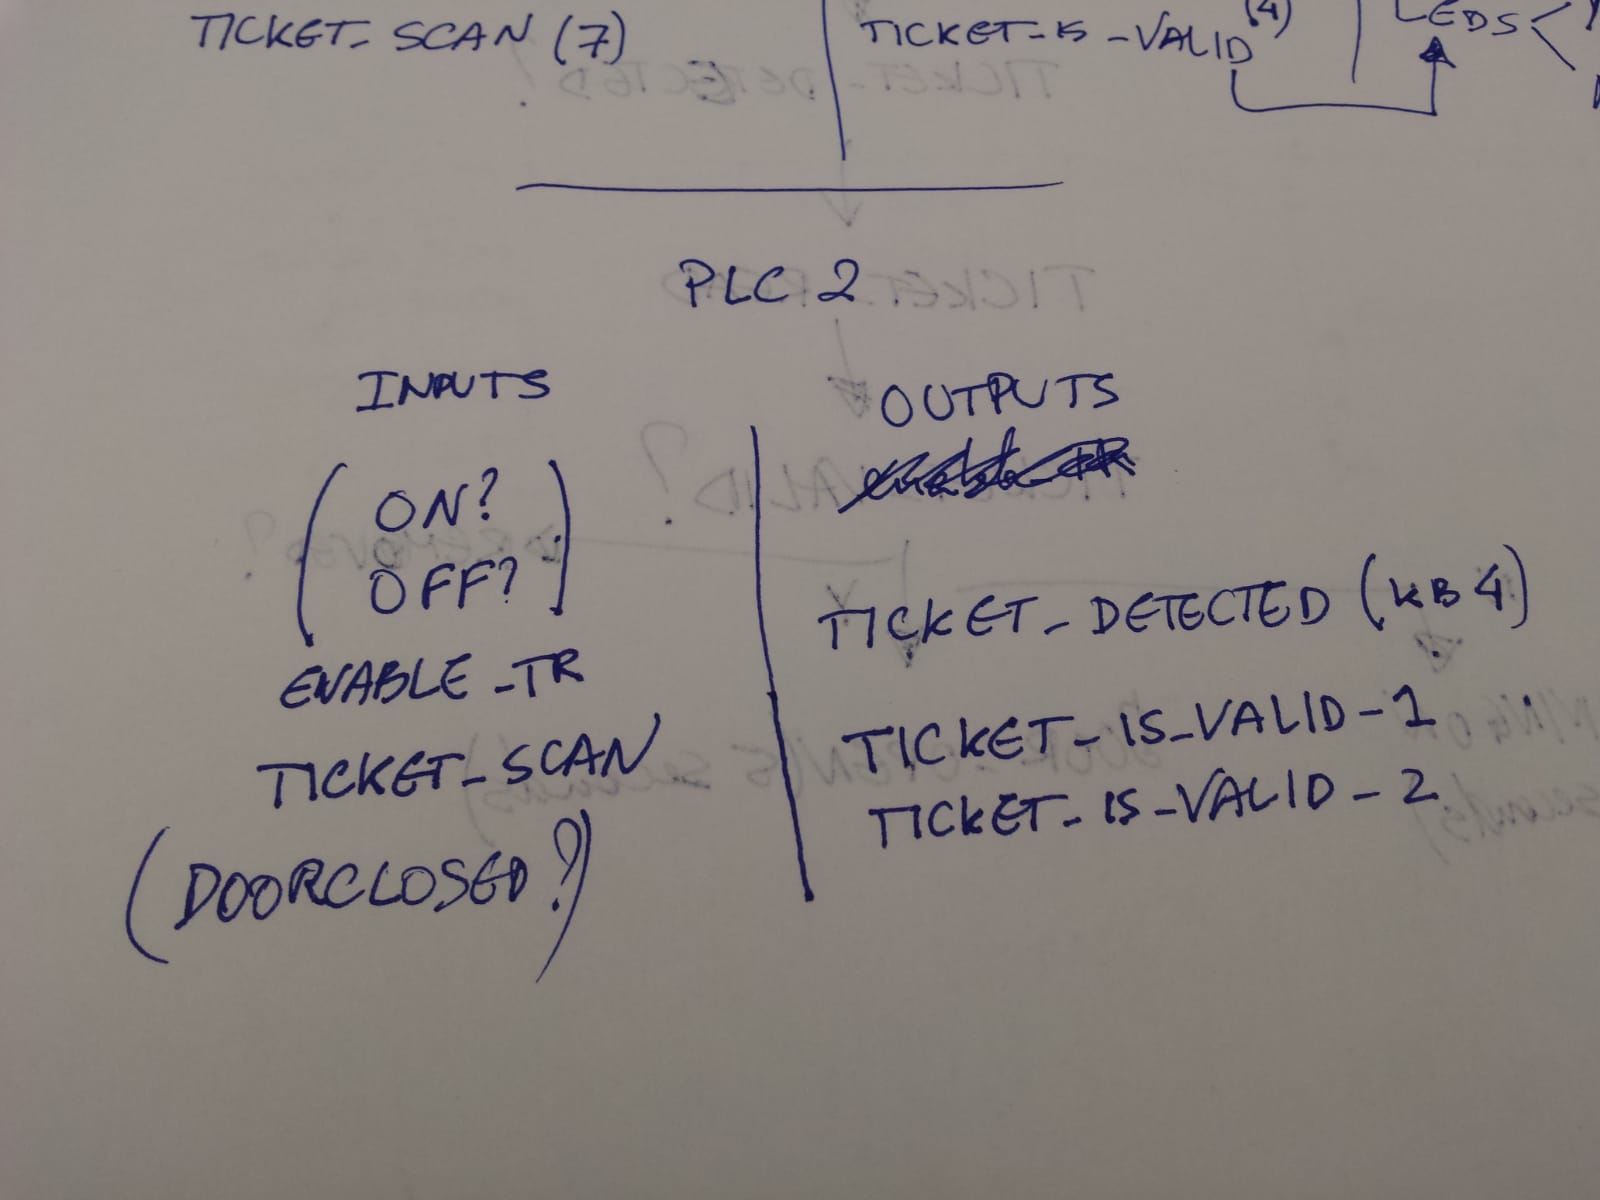 TICKET_SCAN (7)
TICKET_IS_VALID (4)
LEDS
PLC 2
INPUTS
(ON?
OFF?)
ENABLE_TR
TICKET_SCAN
(DOORCLOSED?)
OUTPUTS
TICKET_DETECTED (KB4)
TICKET_IS_VALID-1
TICKET_IS_VALID-2
TICKET_DETECTED?